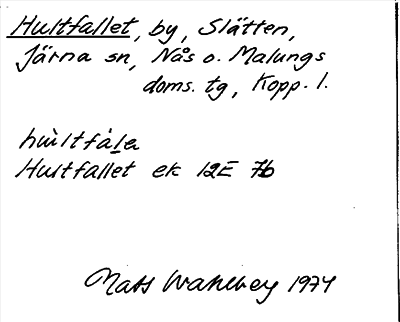 Hultfallet, by, Slätten,
Järna sn, Nås o. Malungs
doms. tg, Kopp. l.
Hultfallet ek 12E 7b
Mats Wahlberg 1974